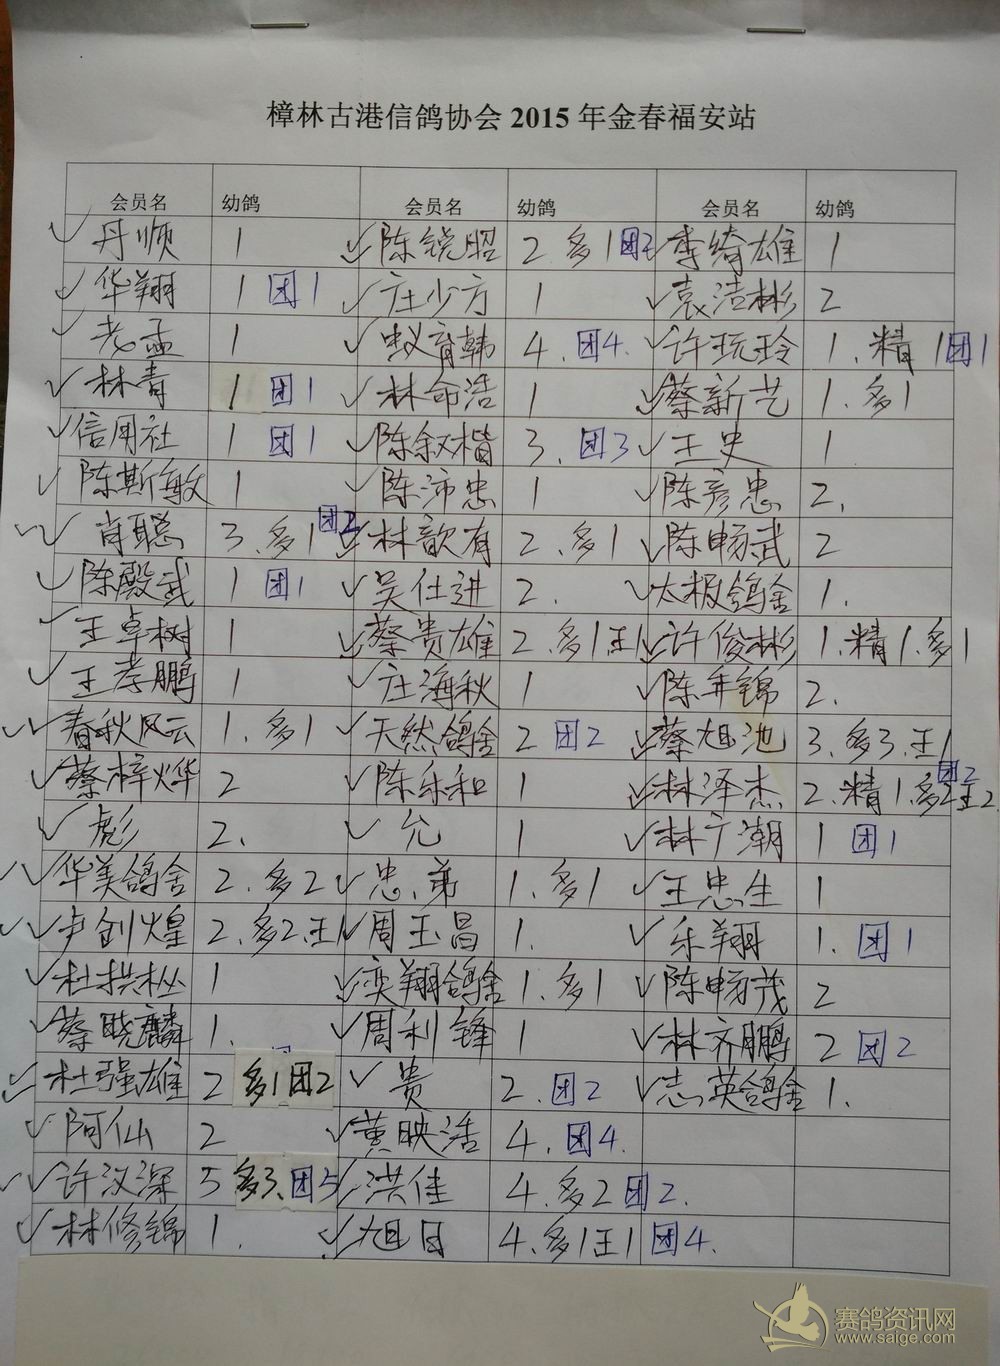 樟林古港信鸽协会 2015 年金春福安站
会员名 幼鸽 会员名 幼鸽 会员名 幼鸽
丹顺 1 陈锐昭 2.多1团2 李绮雄 1
华翔 1 团1 庄少方 1 袁洁彬 2
老孟 1 蚁育韩 4.团4. 许玩玲 1.精1团1
林青 1 团1 林命浩 1 蔡新艺 1.多1
信用社 1 团1 陈叙楷 3.团3 王史 1
陈斯敏 1 陈沛忠 1 陈彦忠 2.
肖聪 3.多1团2 林歆有 2.多1 陈畅武 2
陈殿武 1 团1 吴仕进 2. 太极鸽舍 1.
王卓树 1 蔡贵雄 2.多1王1 许俊彬 1.精1.多1
王孝鹏 1 庄海秋 1 陈弁锦 2.
春秋风云 1.多1 天然鸽舍 2 团2 蔡旭池 3.多3.王1
蔡梓烨 2 陈乐和 1 林泽杰 2.精1.多2王2团2
彪 2. 允 1 林广潮 1 团1
华美鸽舍 2.多2 忠弟 1.多1 王忠生 1
卢创煌 2.多2.王1 周玉昌 1. 乐翔 1.团1
杜拱松 1 奕翔鸽舍 1.多1 陈畅茂 2
蔡晓麟 1. 周利锋 1 林齐鹏 2 团2
杜强雄 2 多1团2 贵 2.团2 志英鸽舍 1.
阿仙 2 黄映浩 4.团4.
许汉深 5 多3.团5 洪佳 4.多2团2.
林修锦 1. 旭日 4.多1王1团4.
赛鸽资讯网
www.saige.com